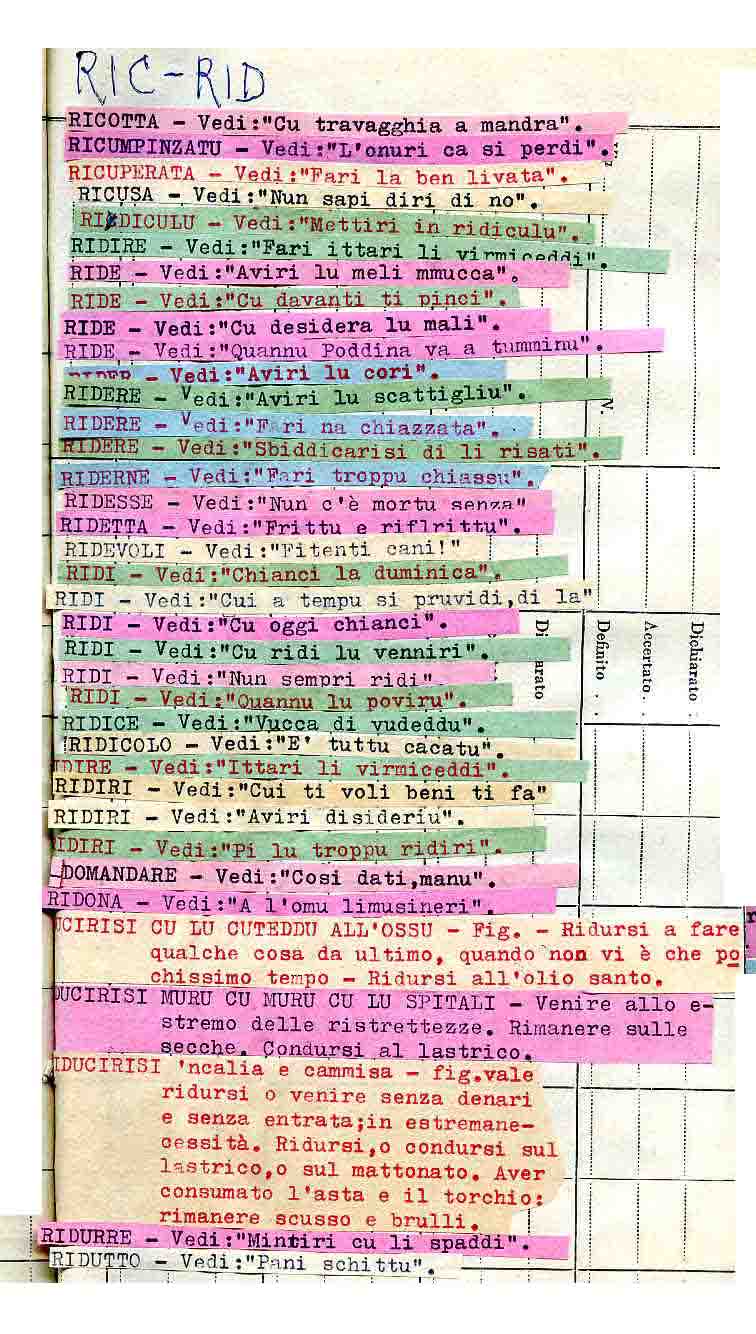 RIC-RID
RICOTTA - Vedi:"Cu travagghia a mandra".
RICUMPINZATU - Vedi:"L'onuri ca si perdi".
RICUPERATA - Vedi:"Fari la ben livata".
RICUSA - Vedi:"Nun sapi diri di no".
RIDICULU - Vedi:"Mettiri in ridiculu".
RIDIRE - Vedi:"Fari ittari li virmiceddi".
RIDE - Vedi:"Aviri lu meli mmucca".
RIDE - Vedi:"Cu davanti ti pinci".
RIDE - Vedi:"Cu desidera lu mali".
RIDE, - Vedi:"Quannu Poddina va a tumminu".
- Vedi:"Aviri lu cori".
RIDERE - Vedi:"Aviri lu scattigliu".
V.
RIDERE - Vedi:"Fari na chiazzata".
RIDERE - Vedi:"Sbiddicarisi di li risati".
RIDERNE - Vedi:"Fari troppu chiassu".
RIDESSE - Vedi:"Nun c'è mortu senza"
RIDETTA - Vedi:"Frittu e riflrittu".
RIDEVOLI - Vedi:"Fitenti cani!"
RIDI - Vedi:"Chianci la duminica".
RIDI - Vedi:"Cui a tempu si pruvidi,di la"
RIDI - Vedi:"Cu oggi chianci".
RIDI - Vedi:"Cu ridi lu venniri".
Definito . .
Accertato. .
Dichiarato .
RIDI - Vedi:"Nun sempri ridi".
RIDI - Vedi:"Quannu lu poviru".
RIDICE - Vedi:"Vucca di vudeddu".
RIDICOLO - Vedi:"E' tuttu cacatu".
IDIRE - Vedi:"Ittari li virmiceddi".
RIDIRI - Vedi:"Cui ti voli beni ti fa"
RIDIRI - Vedi:"Aviri disideriu".
IDIRI - Vedi:"Pi lu troppu ridiri".
DOMANDARE - Vedi:"Cosi dati,manu".
RIDONA - Vedi:"A l'omu limusineri".
UCIRISI CU LU CUTEDDU ALL'OSSU - Fig. - Ridursi a fare
qualche cosa da ultimo, quando non vi è che po
chissimo tempo - Ridursi all'olio santo.
DUCIRISI MURU CU MURU CU LU SPITALI - Venire allo e-
stremo delle ristrettezze. Rimanere sulle
secche. Condursi al lastrico.
IDUCIRISI 'ncalia e cammisa - fig.vale
ridursi o venire senza denari
e senza entrata;in estremane-
cessità. Ridursi,o condursi sul
lastrico,o sul mattonato. Aver
consumato l'asta e il torchio:
rimanere scusso e brulli.
RIDURRE - Vedi:"Mintiri cu li spaddi".
RIDUTTO - Vedi:"Pani schittu".